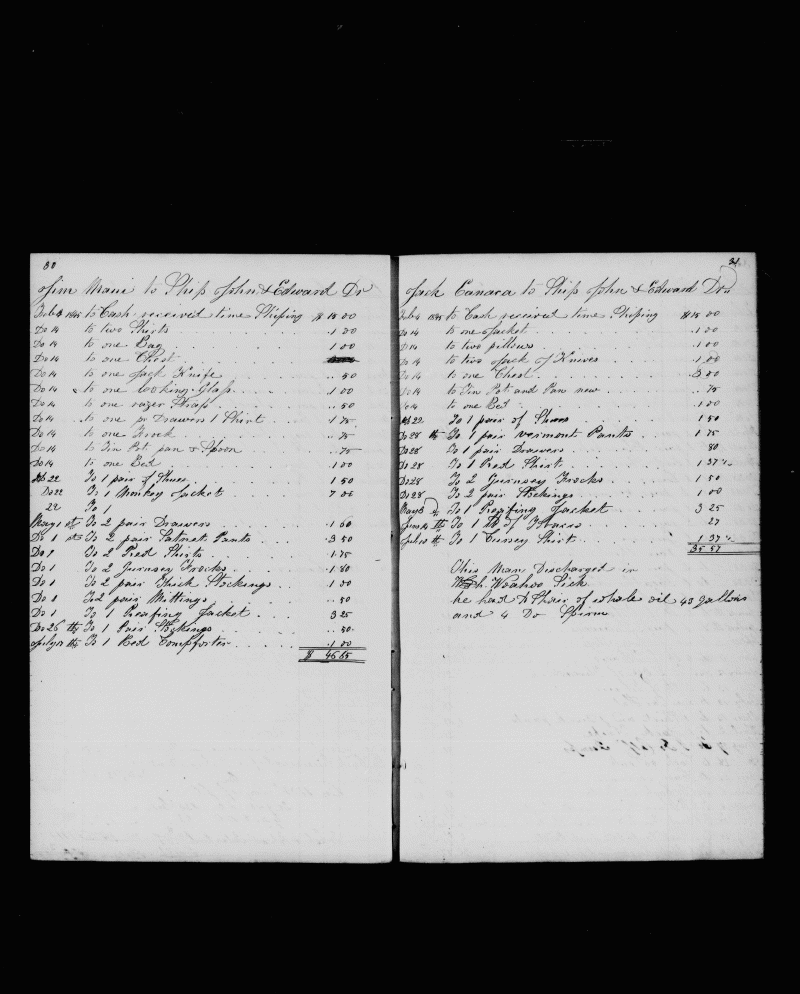 30
Jim Mani to Ship John & Edward Dr
Feb 4 1845 to Cash received time Shiping $ 15 00
Do 14 to two Shirts 1 00
Do 14 to one Bag 1 00
Do 14 to one Chest
Do 14 to one Jack Knife 50
Do 14 to one looking Glass 1 00
Do 14 to one razer Strap 50
Do 14 to one pr Drawers 1 Shirt 1 75
Do 14 to one Frock 75
Do 14 to Tin Pot pan & Spoon 75
Do 14 to one Bed 1 00
Feb 22 To 1 pair of Shoes 1 50
Do 22 To 1 Monkey Jacket 7 00
22 To 1
May 1 st To 2 pair Drawers 1 60
Do 1 st To 2 pair Satnet Pants 3 50
Do 1 To 2 Red Shirts 1 75
Do 1 To 2 Gurnsey Frocks 1 50
Do 1 To 2 pair Thick Stockings 1 00
Do 1 To 2 pair Mittings 50
Do 1 To 1 Reafing Jacket 3 25
Do 26 th To 1 Pair Stockings 50
July 10 th To 1 Red Compforter 1 00
$ 46 65
31
Jack Canaca to Ship John & Edward Dr
Feb 4 1845 to Cash received time Shiping $ 15 00
Do 14 to one Jacket 1 00
Do 14 to two pillows 1 00
Do 14 to two Jack of Knives 1 00
Do 14 to one Chest 3 00
Do 14 to Tin Pot and Pan new 75
Do 14 to one Bed 1 00
Feb 22 To 1 pair of Shoes 1 50
Do 28 th To 1 pair vermont Pants 1 75
Do 28 To 1 pair Drawers 80
Do 28 To 1 Red Shirt 1 37 ½
Do 28 To 2 Gurnsey Frocks 1 50
Do 28 To 2 pair Stockings 1 00
May 3 To 1 Reafing Jacket 3 25
June 14 th To 1 lb of Tobacco 27
July 10 th To 1 Cursey Shirt 1 37 ½
35 57
This Man Discharged in
Woahoo Sick
he had to Shair of whale oil 43 gallons
and 4 Do Spirm